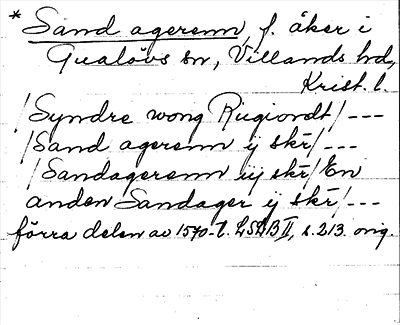 * Sand agerenn, f. åker i
Gualövs sn, Villands hd,
Krist. l.
/Syndre wong Rugiordt/ ---
/Sand agerenn ij skr/ ---
/Sandagerenn iij skr/ En
anden Sandager ij skr/ ---
förra delen av 1570-t. LSLB II, s. 213. orig.